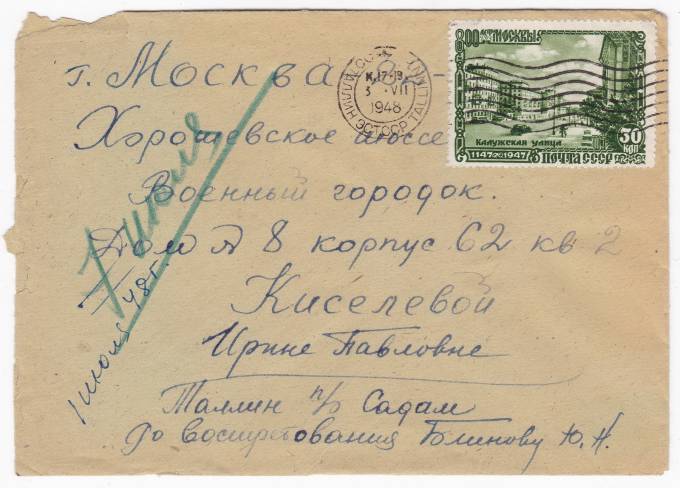 г. Москва
Хорошевское шоссе
Военный городок.
Дом № 8 корпус 62 кв 2
Киселевой
Ирине Павловне
Таллин п/о Садам
До востребования Блинову Ю. Н.
1 июля 48 г.
июля
800 лет Москвы
Калужская улица
1147 1947
Почта СССР
50 коп
ТАЛЛИНН ЭСТ ССР TALLINN
17-18
3 VII
1948